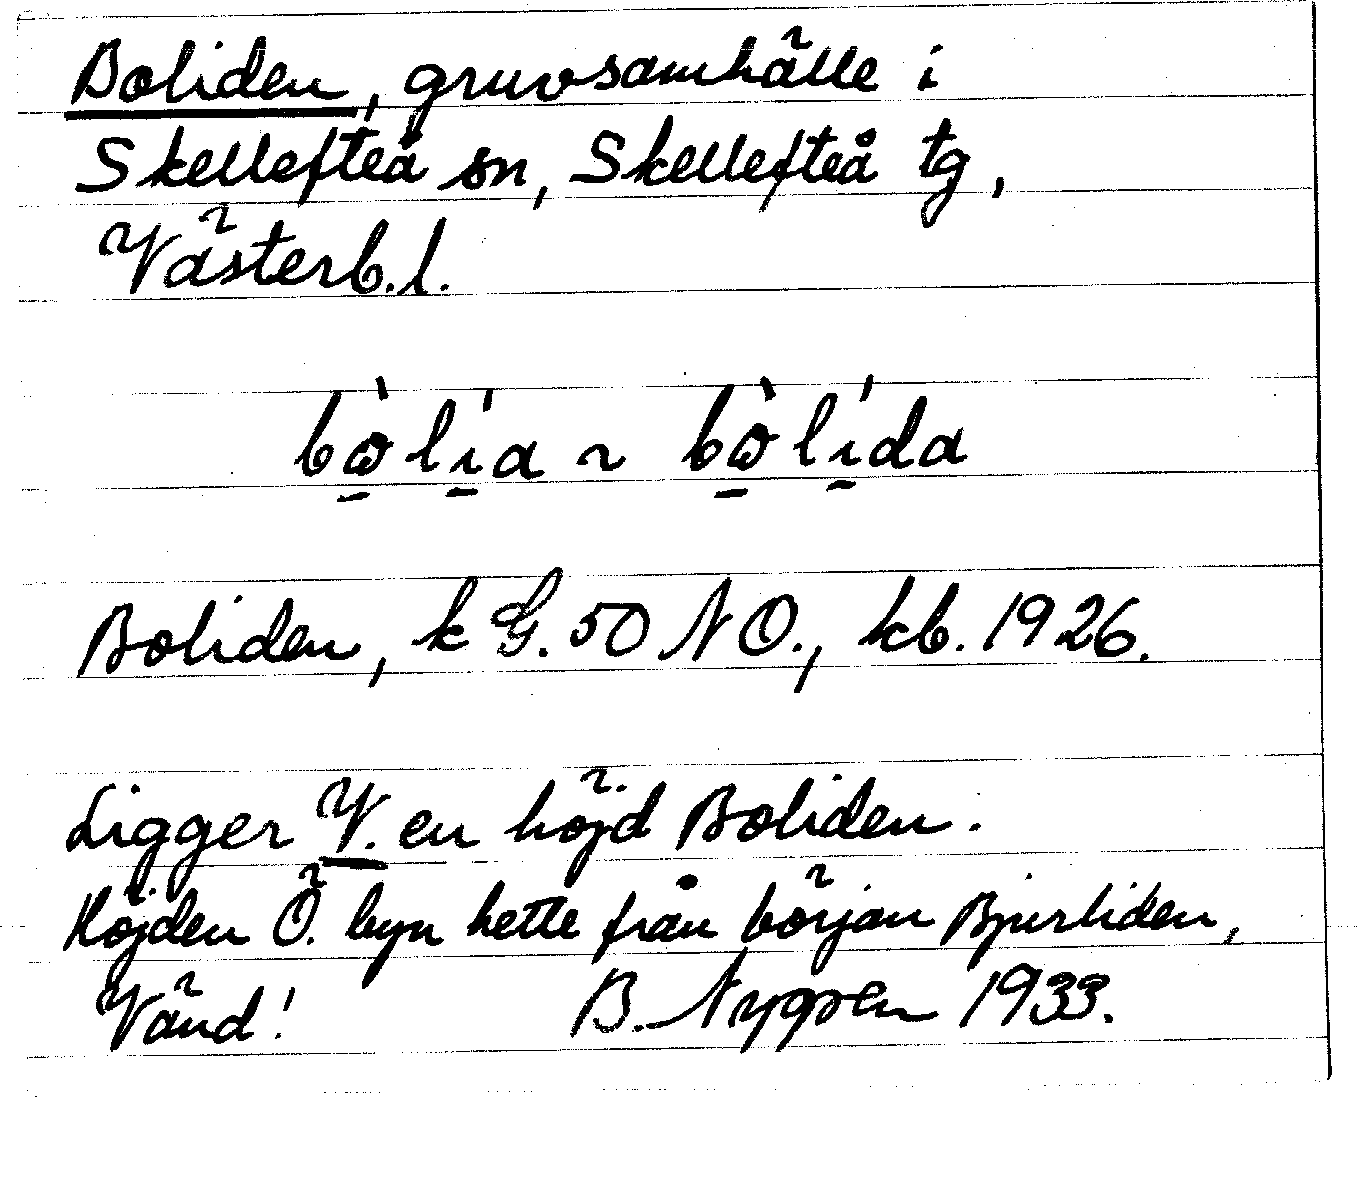 Boliden, gruvsamhälle i
Skellefteå sn, Skellefteå tg,
Västerb.l.
bὼ̲lı̲́a ~ bὼ̲lı̲́da
Boliden, k G. 50 NO., kb. 1926.
Ligger V. en höjd Boliden.
Höjden Ö. byn hette från början Bjurliden,
Vänd! B. Nygren 1933.